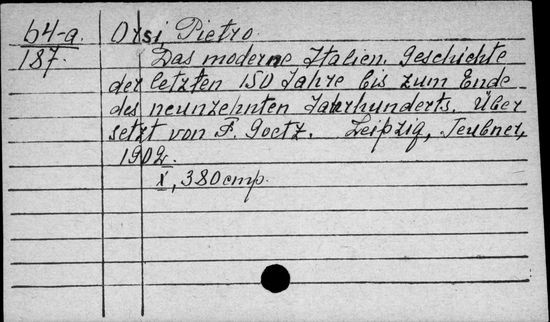 64-a. Orsi, Pietro.
187. Das moderne Italien. Geschichte
der letzten 150 Jahre bis zum Ende
des neunzehnten Jahrhunderts. Über
setzt von F. Goetz. Leipzig, Teubner,
1902.
X, 380 стр.